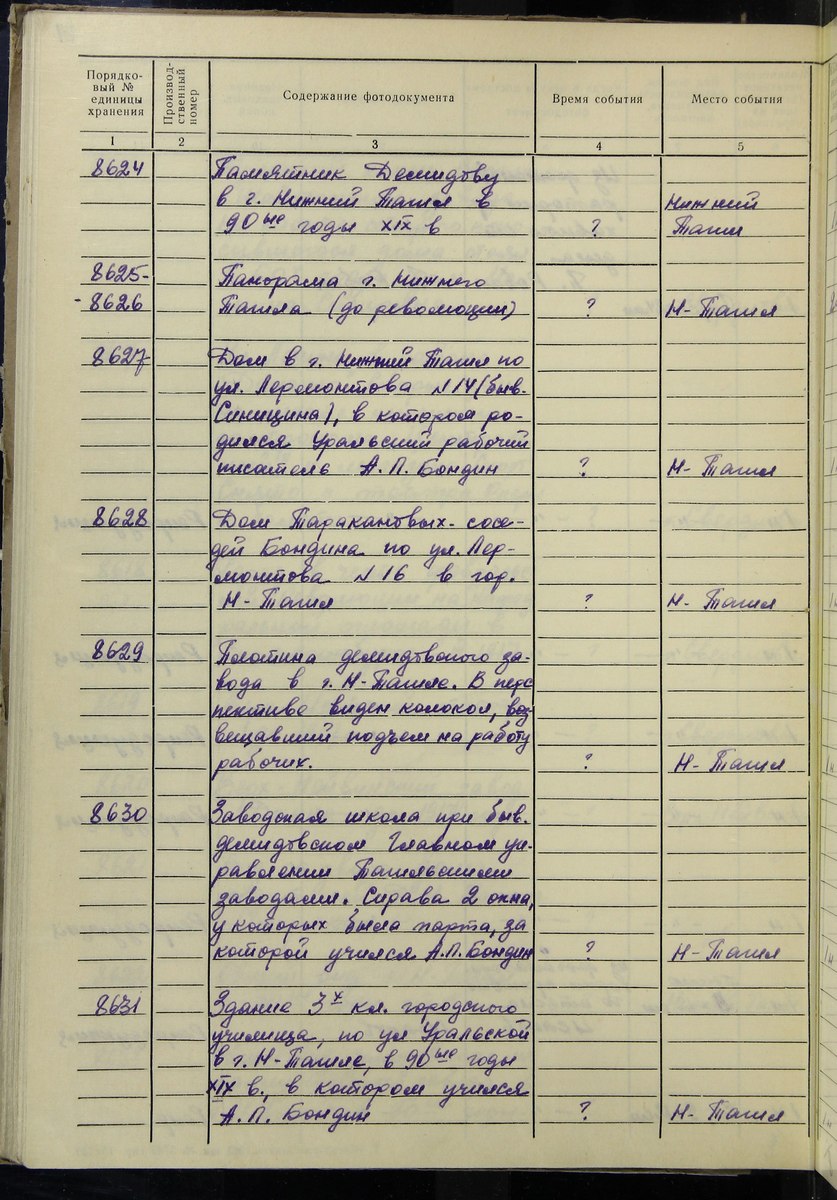 Порядко-
вый №
единицы
хранения
Производ-
ственный
номер
Содержание фотодокумента
Время события
Место события
1 2 3 4 5
8624 Памятник Демидову
в г. Нижний Тагил в Нижний
90ые годы XIX в ? Тагил
8625- Панорама г. Нижнего
-8626 Тагила (до революции) ? Н-Тагил
8627 Дом в г. Нижний Тагил по
ул. Лермонтова №14 (быв.
Синицина), в котором ро-
дился Уральский рабочий
писатель А.П. Бондин ? Н-Тагил
8628 Дом Таракановых-сосе-
дей Бондина по ул. Лер-
монтова №16 в гор.
Н-Тагил ? Н-Тагил
8629 Плотина демидовского за-
вода в г. Н-Тагиле. В перс
пективе виден колокол, воз-
вещавший подъем на работу
рабочих. ? Н-Тагил
8630 Заводская школа при быв.
демидовском Главном уп-
равлении Тагильскими
заводами. Справа 2 окна,
у которых была парта, за
которой учился А.П. Бондин ? Н-Тагил
8631 Здание 3х кл. городского
училища, по ул Уральской
в г. Н-Тагиле, в 90ые годы
XIX в., в котором учился
А.П. Бондин ? Н-Тагил